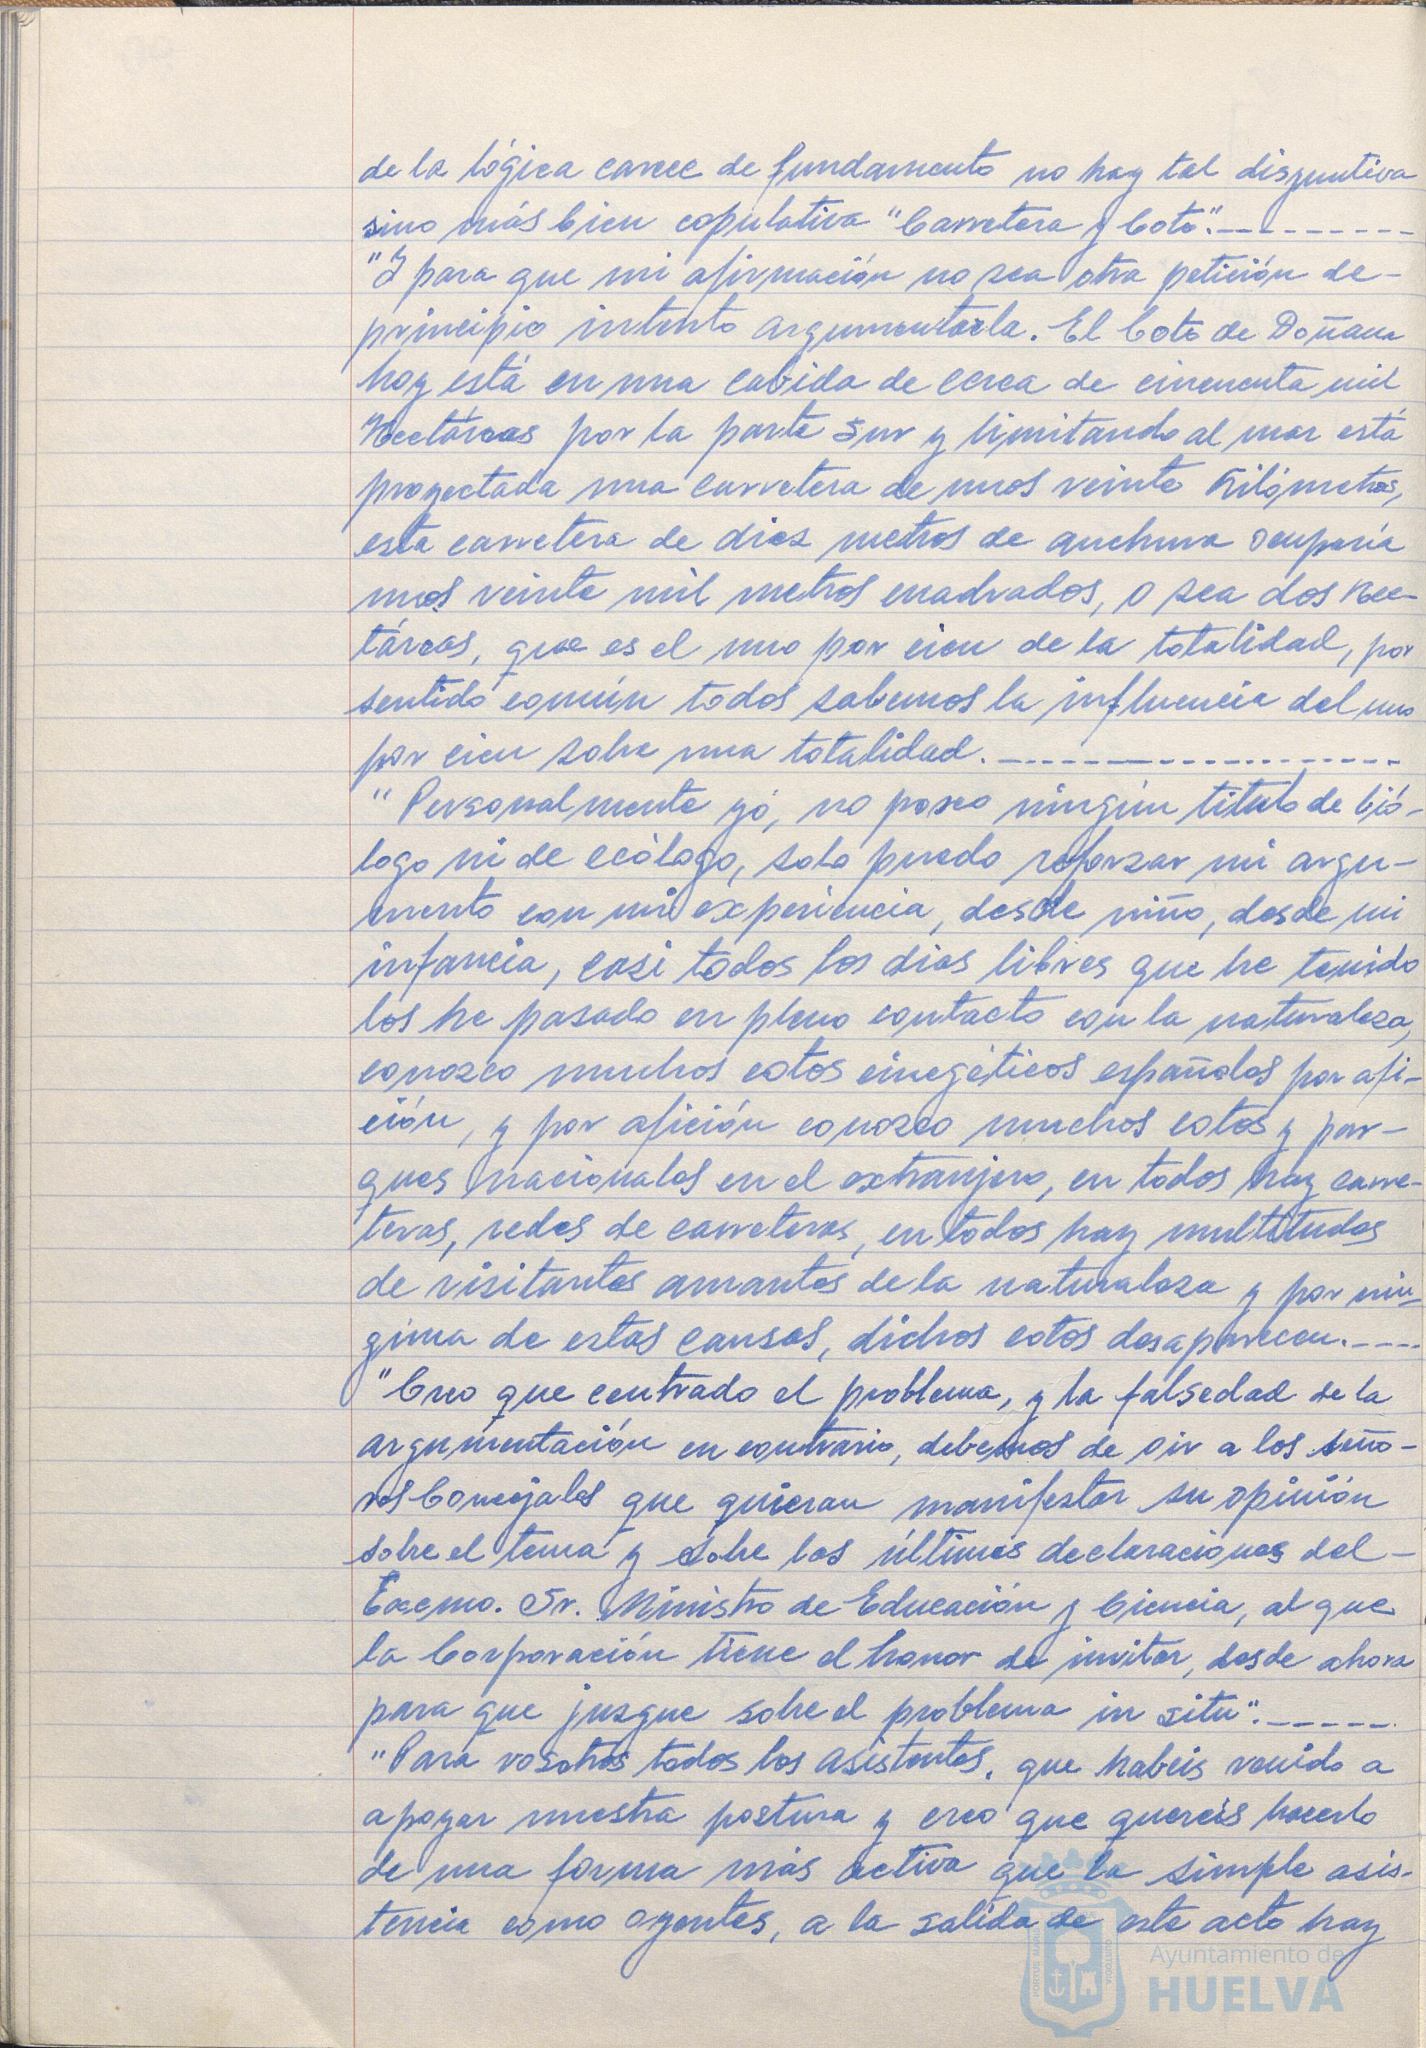 de la lógica carece de fundamento no hay tal disyuntiva
sino más bien copulativa "Carretera y Coto".---------
"Y para que mi afirmación no sea otra petición de-
principio intento argumentarla. El Coto de Doñana
hoy está en una cabida de cerca de cincuenta mil
Hectáreas por la parte sur y limitando al mar está
proyectada una carretera de unos veinte Kilómetros,
esta carretera de diez metros de anchura ocuparía
unos veinte mil metros cuadrados, o sea dos Hec-
táreas, que es el uno por cien de la totalidad, por
sentido común todos sabemos la influencia del uno
por cien sobre una totalidad.--------------------
"Personalmente yó, no poseo ningún titulo de bió-
logo ni de ecólogo, solo puedo reforzar mi argu-
mento con mi experiencia, desde niño, desde mi
infancia, casi todos los dias libres que he tenido
los he pasado en pleno contacto con la naturaleza,
conozco muchos cotos cinegéticos españoles por afi-
ción, y por afición conozco muchos cotos y par-
ques nacionales en el extranjero, en todos hay carre-
teras, redes de carreteras, en todos hay multitudes
de visitantes amantes de la naturaleza y por nin-
guna de estas causas, dichos cotos desaparecen.----
"Creo que centrado el problema, y la falsedad de la
argumentación en contrario, debemos de oir a los seño-
res Concejales que quieran manifestar su opinión
sobre el tema y sobre las últimas declaraciones del-
Excmo. Sr. Ministro de Educación y Ciencia, al que
la Corporación tiene el honor de invitar, desde ahora
para que juzgue sobre el problema in situ".------
"Para vosotros todos los asistentes, que habeis venido a
apoyar nuestra postura y creo que quereis hacerlo
de una forma más activa que la simple asis-
tencia como oyentes, a la salida de este acto hay
Ayuntamiento de
HUELVA